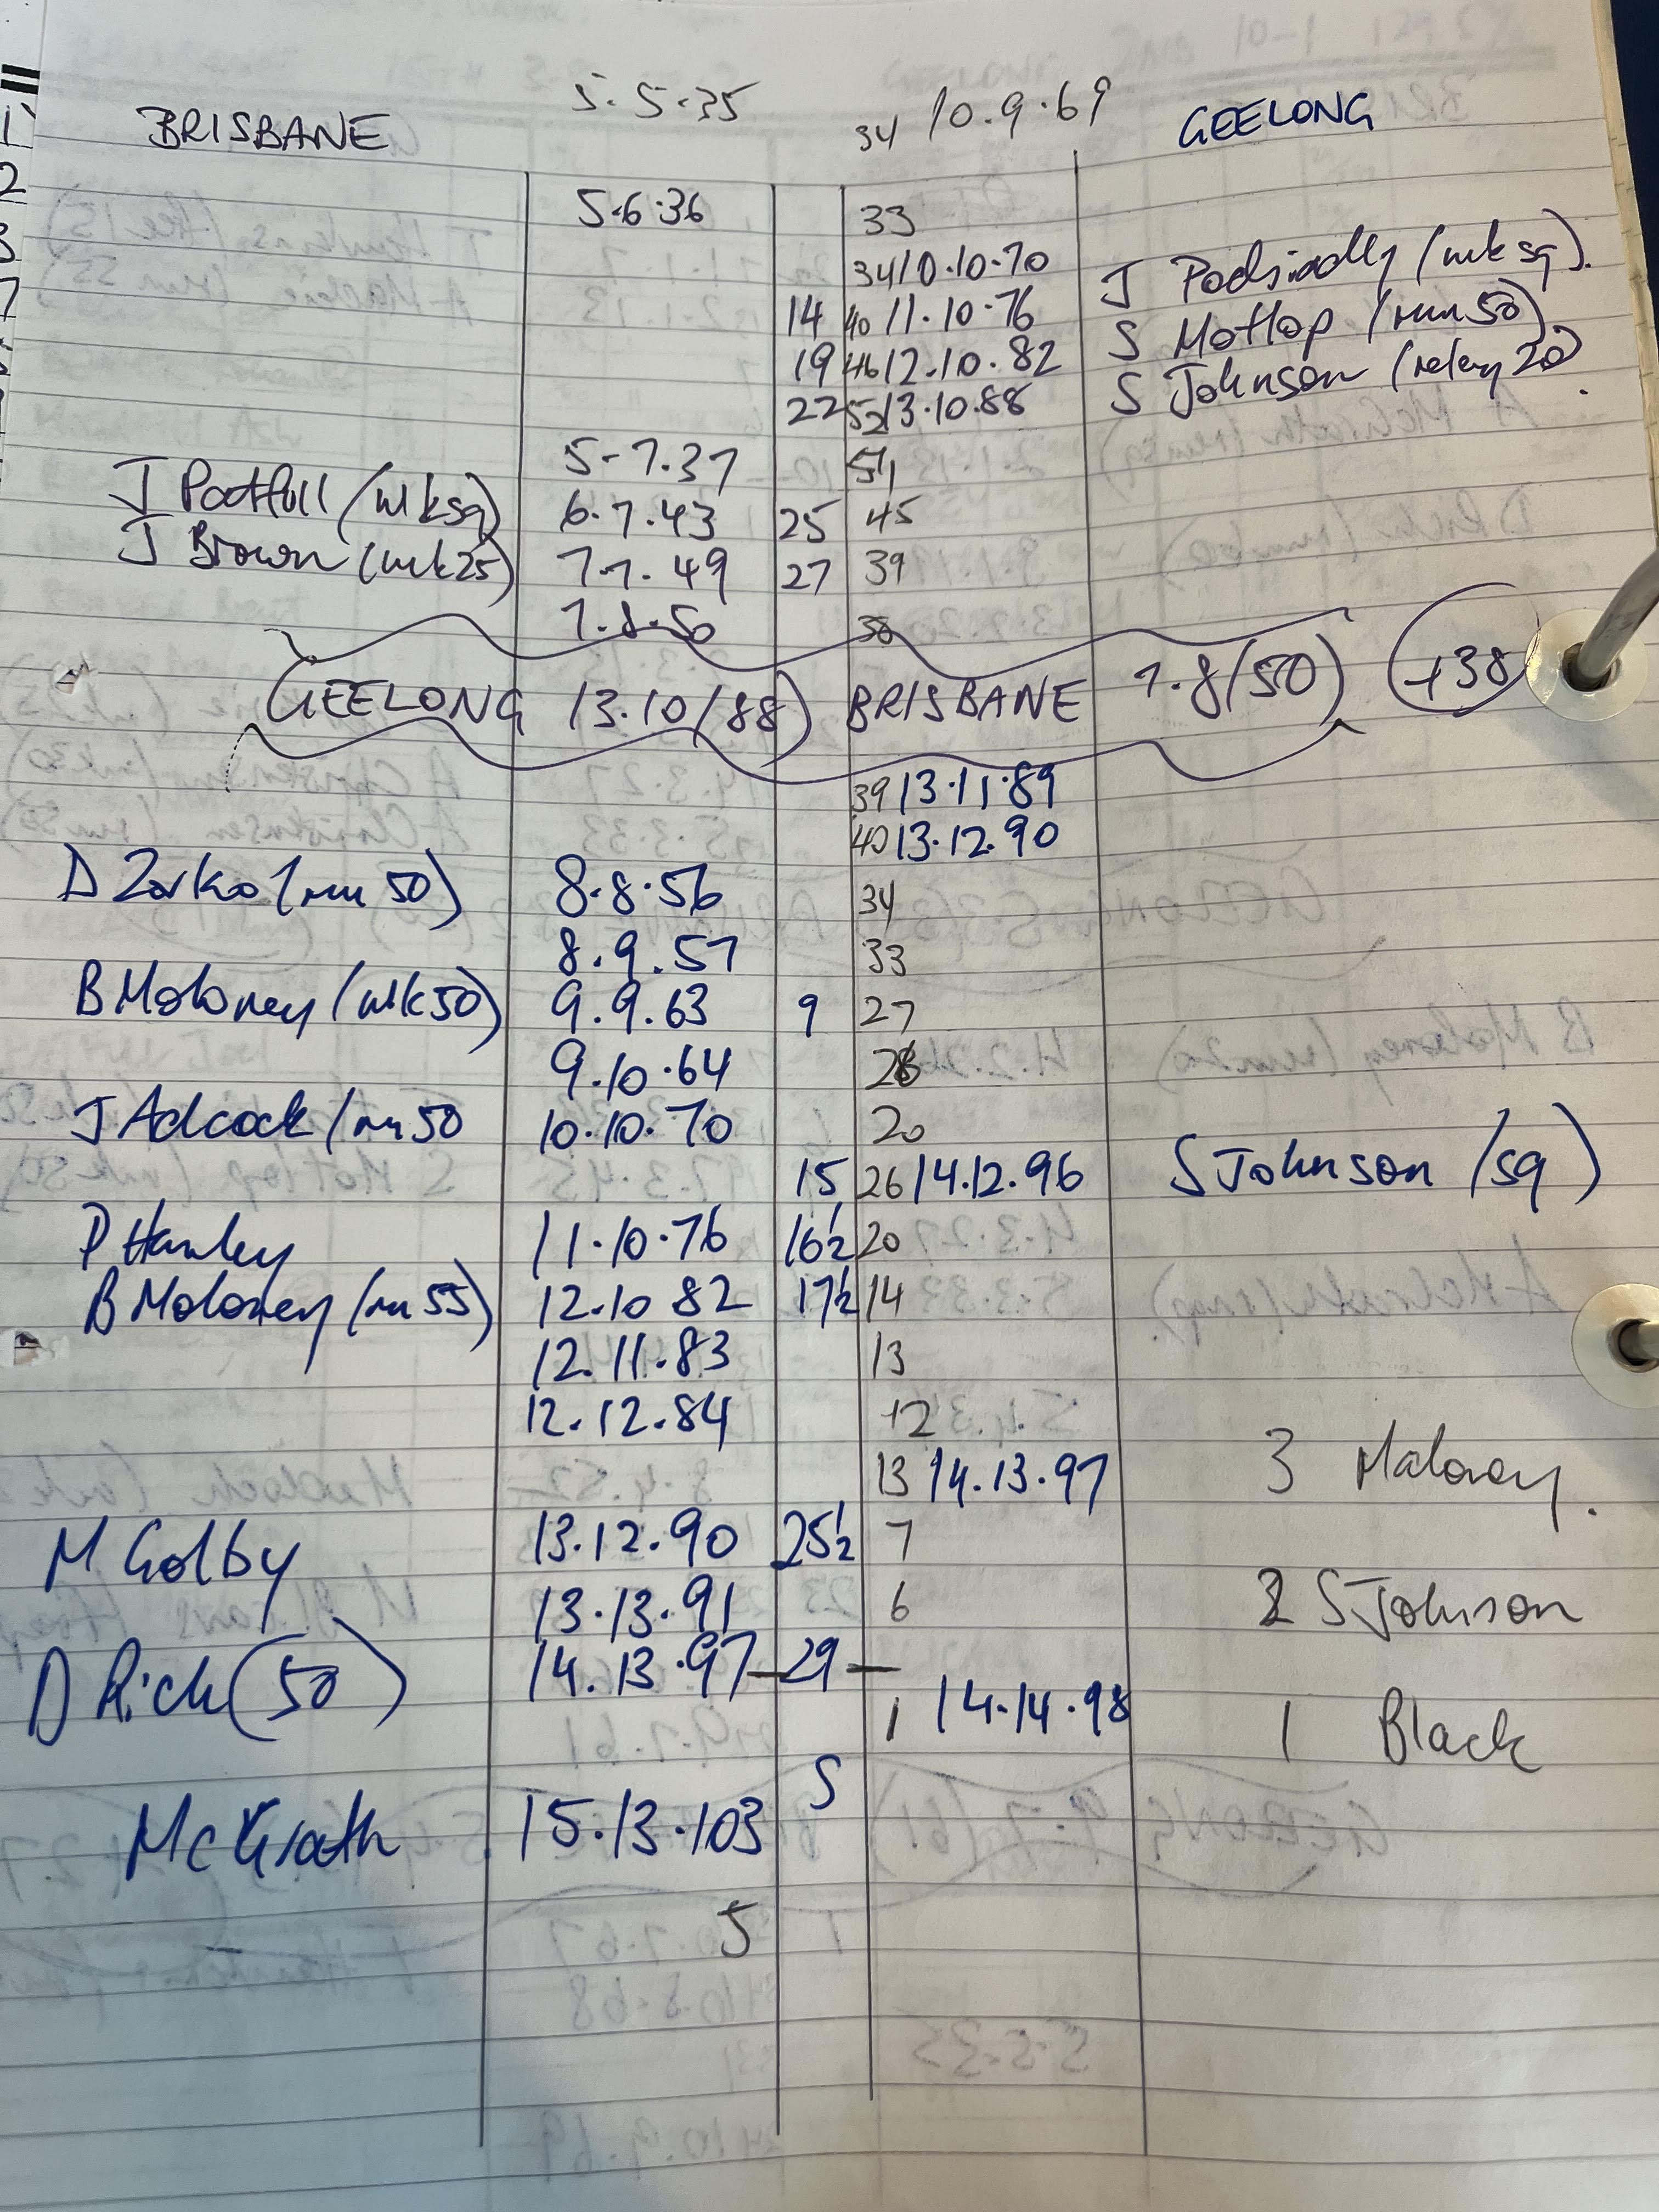 BRISBANE 5.5.35 34 10.9.69 GEELONG
5.6.36 33
34 10.10.70 J Podsiadly (mk sq).
14 40 11.10.76 S Motlop (run 50)
19 46 12.10.82 S Johnson (relay 20)
22 52 13.10.88
5-7.37 51
J Patfull (mk sq) 6.7.43 25 45
J Brown (mk 25) 7.7.49 27 39
7.8.50 38
GEELONG 13.10 (88) BRISBANE 7.8 (50) +38
39 13.11.89
40 13.12.90
D Zorko (run 50) 8.8.56 34
8.9.57 33
B Moloney (mk 50) 9.9.63 9 27
9.10.64 26
J Adcock (run 50 10.10.70 20
15 26 14.12.96 S Johnson (sq)
P Hanley 11.10.76 16½ 20
B Moloney (run 55) 12.10 82 17½ 14
12.11.83 13
12.12.84 12
13 14.13.97 3 Maloney.
M Golby 13.12.90 25½ 7
13.13.91 6 2 S Johnson
D Rich (50) 14.13.97 - 29 -
1 14.14.98 1 Black
S
McGrath 15.13.103
5